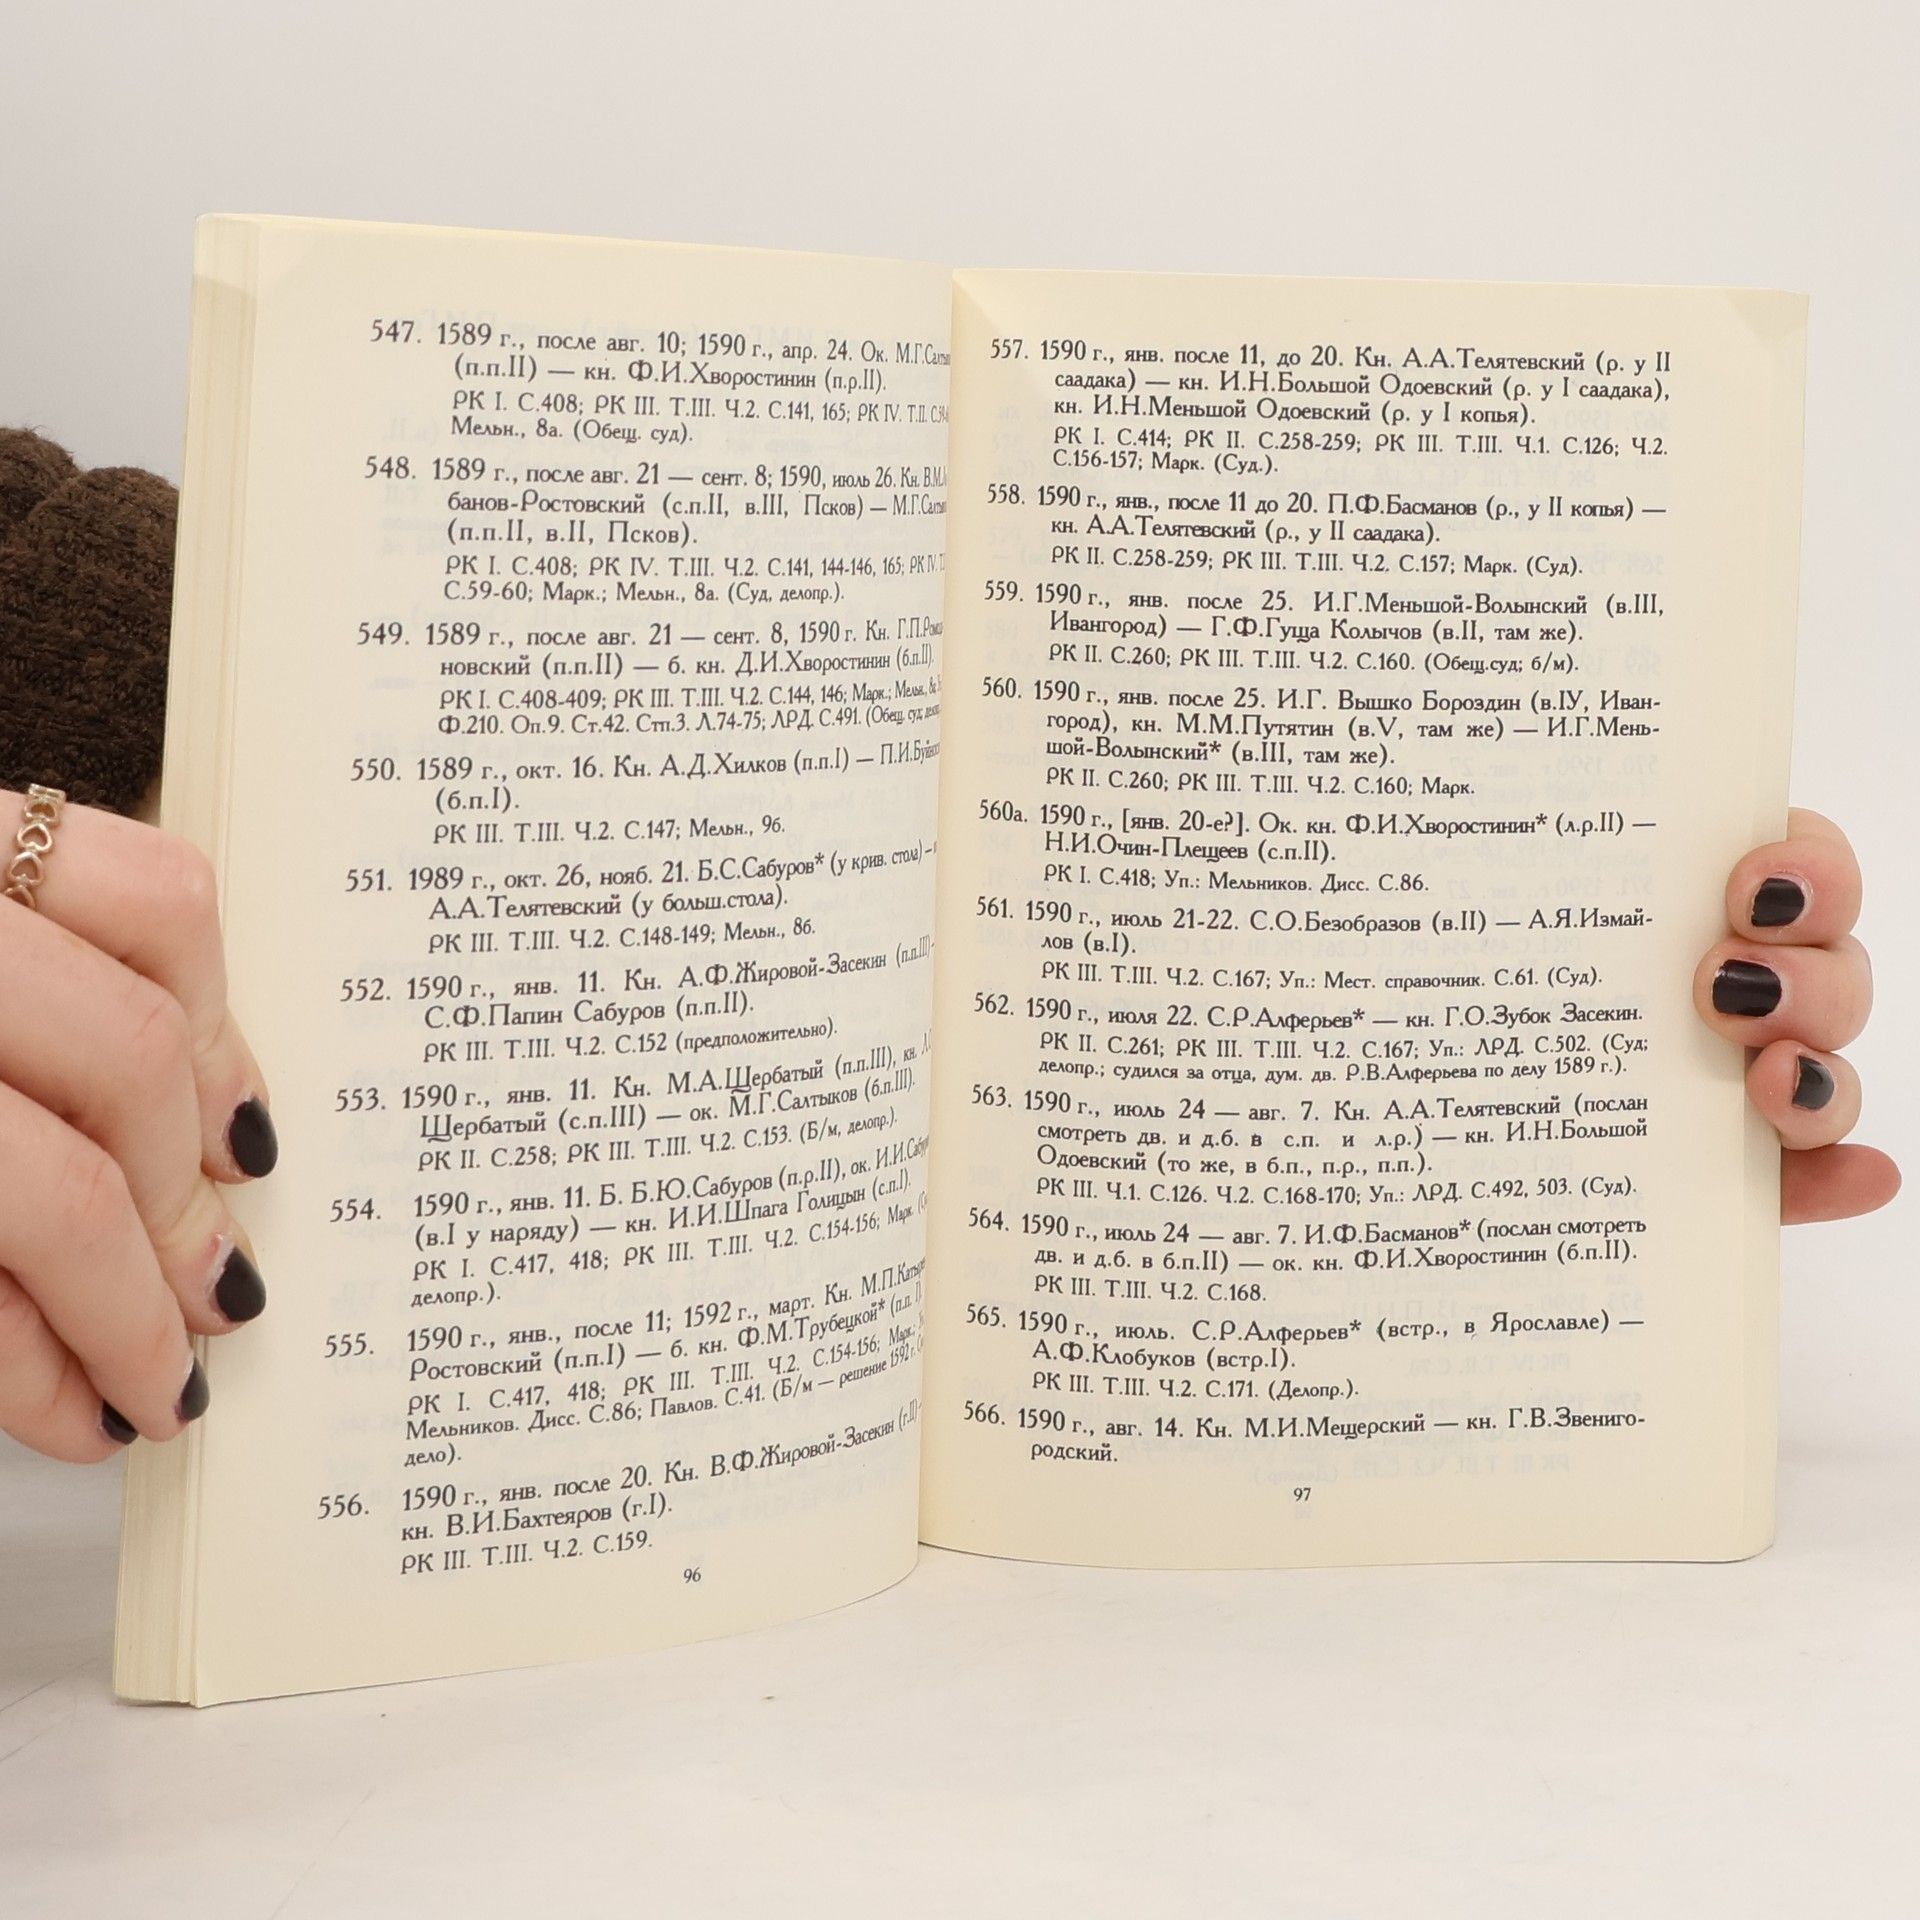 547. 1589 г., после авг. 10; 1590 г., апр. 24. Ок.
(п.п.II) — кн. Ф.И.Хворостинин (п.р.II).
РК I. С.408; РК III. Т.III. Ч.2. С.141, 165; РК IV. Т.II.
Мельн., 8а. (Обещ. суд).
548. 1589 г., после авг. 21 — сент. 8; 1590, июль 26. Кн.
банов-Ростовский (с.п.II, в.III, Псков) —
(п.п.II, в.II, Псков).
РК I. С.408; РК IV. Т.III. Ч.2. С.141, 144-146, 165; РК IV.
С.59-60; Марк.; Мельн., 8а. (Суд, делопр.).
549. 1589 г., после авг. 21 — сент. 8, 1590 г. Кн.
новский (п.п.II) — б. кн. Д.И.Хворостинин (б.п.II).
РК I. С.408-409; РК III. Т.III. Ч.2. С.144, 146; Марк.; Мельн., 8а
Ф.210. Оп.9. Ст.42. Стп.3. Л.74-75; ЛРД. С.491. (Обещ. суд;
550. 1589 г., окт. 16. Кн. А.Д.Хилков (п.п.I) —
(б.п.I).
РК III. Т.III. Ч.2. С.147; Мельн., 9б.
551. 1989 г., окт. 26, нояб. 21. Б.С.Сабуров* (у крив. стола) –
А.А.Телятевский (у больш.стола).
РК III. Т.III. Ч.2. С.148-149; Мельн., 8б.
552. 1590 г., янв. 11. Кн. А.Ф.Жировой-Засекин (п.п.III) –
С.Ф.Папин Сабуров (п.п.II).
РК III. Т.III. Ч.2. С.152 (предположительно).
553. 1590 г., янв. 11. Кн. М.А.Щербатый (п.п.III), кн.
Щербатый (с.п.III) — ок. М.Г.Салтыков (б.п.III).
РК II. С.258; РК III. Т.III. Ч.2. С.153. (Б/м, делопр.).
554. 1590 г., янв. 11. Б. Б.Ю.Сабуров (п.р.II), ок.
(в.I у наряду) — кн. И.И.Шпага Голицын (с.п.I).
РК I. С.417, 418; РК III. Т.III. Ч.2. С.154-156; Марк.
делопр.).
555. 1590 г., янв., после 11; 1592 г., март. Кн.
Ростовский (п.п.I) — б. кн. Ф.М.Трубецкой* (п.п.
РК I. С.417, 418; РК III. Т.III. Ч.2. С.154-156; Марк.;
Мельников. Дисс. С.86; Павлов. С.41. (Б/м — решение 1592 г.
дело).
556. 1590 г., янв. после 20. Кн. В.Ф.Жировой-Засекин (г.II) –
кн. В.И.Бахтеяров (г.I).
РК III. Т.III. Ч.2. С.159.
96
557. 1590 г., янв. после 11, до 20. Кн. А.А.Телятевский (р. у II
саадака) — кн. И.Н.Большой Одоевский (р. у I саадака),
кн. И.Н.Меньшой Одоевский (р. у I копья).
РК I. С.414; РК II. С.258-259; РК III. Т.III. Ч.1. С.126; Ч.2.
С.156-157; Марк. (Суд.).
558. 1590 г., янв., после 11 до 20. П.Ф.Басманов (р., у II копья) —
кн. А.А.Телятевский (р., у II саадака).
РК II. С.258-259; РК III. Т.III. Ч.2. С.157; Марк. (Суд).
559. 1590 г., янв. после 25. И.Г.Меньшой-Волынский (в.III,
Ивангород) — Г.Ф.Гуща Колычов (в.II, там же).
РК II. С.260; РК III. Т.III. Ч.2. С.160. (Обещ.суд; б/м).
560. 1590 г., янв. после 25. И.Г. Вышко Бороздин (в.IУ, Иван-
город), кн. М.М.Путятин (в.V, там же) — И.Г.Мень-
шой-Волынский* (в.III, там же).
РК II. С.260; РК III. Т.III. Ч.2. С.160; Марк.
560а. 1590 г., [янв. 20-е?]. Ок. кн. Ф.И.Хворостинин* (л.р.II) —
Н.И.Очин-Плещеев (с.п.II).
РК I. С.418; Уп.: Мельников. Дисс. С.86.
561. 1590 г., июль 21-22. С.О.Безобразов (в.II) — А.Я.Измай-
лов (в.I).
РК III. Т.III. Ч.2. С.167; Уп.: Мест. справочник. С.61. (Суд).
562. 1590 г., июля 22. С.Р.Алферьев* — кн. Г.О.Зубок Засекин.
РК II. С.261; РК III. Т.III. Ч.2. С.167; Уп.: ЛРД. С.502. (Суд;
делопр.; судился за отца, дум. дв. Р.В.Алферьева по делу 1589 г.).
563. 1590 г., июль 24 — авг. 7. Кн. А.А.Телятевский (послан
смотреть дв. и д.б. в с.п. и л.р.) — кн. И.Н.Большой
Одоевский (то же, в б.п., п.р., п.п.).
РК III. Ч.1. С.126. Ч.2. С.168-170; Уп.: ЛРД. С.492, 503. (Суд).
564. 1590 г., июль 24 — авг. 7. И.Ф.Басманов* (послан смотреть
дв. и д.б. в б.п.II) — ок. кн. Ф.И.Хворостинин (б.п.II).
РК III. Т.III. Ч.2. С.168.
565. 1590 г., июль. С.Р.Алферьев* (встр., в Ярославле) —
А.Ф.Клобуков (встр.I).
РК III. Т.III. Ч.2. С.171. (Делопр.).
566. 1590 г., авг. 14. Кн. М.И.Мещерский — кн. Г.В.Звениго-
родский.
97